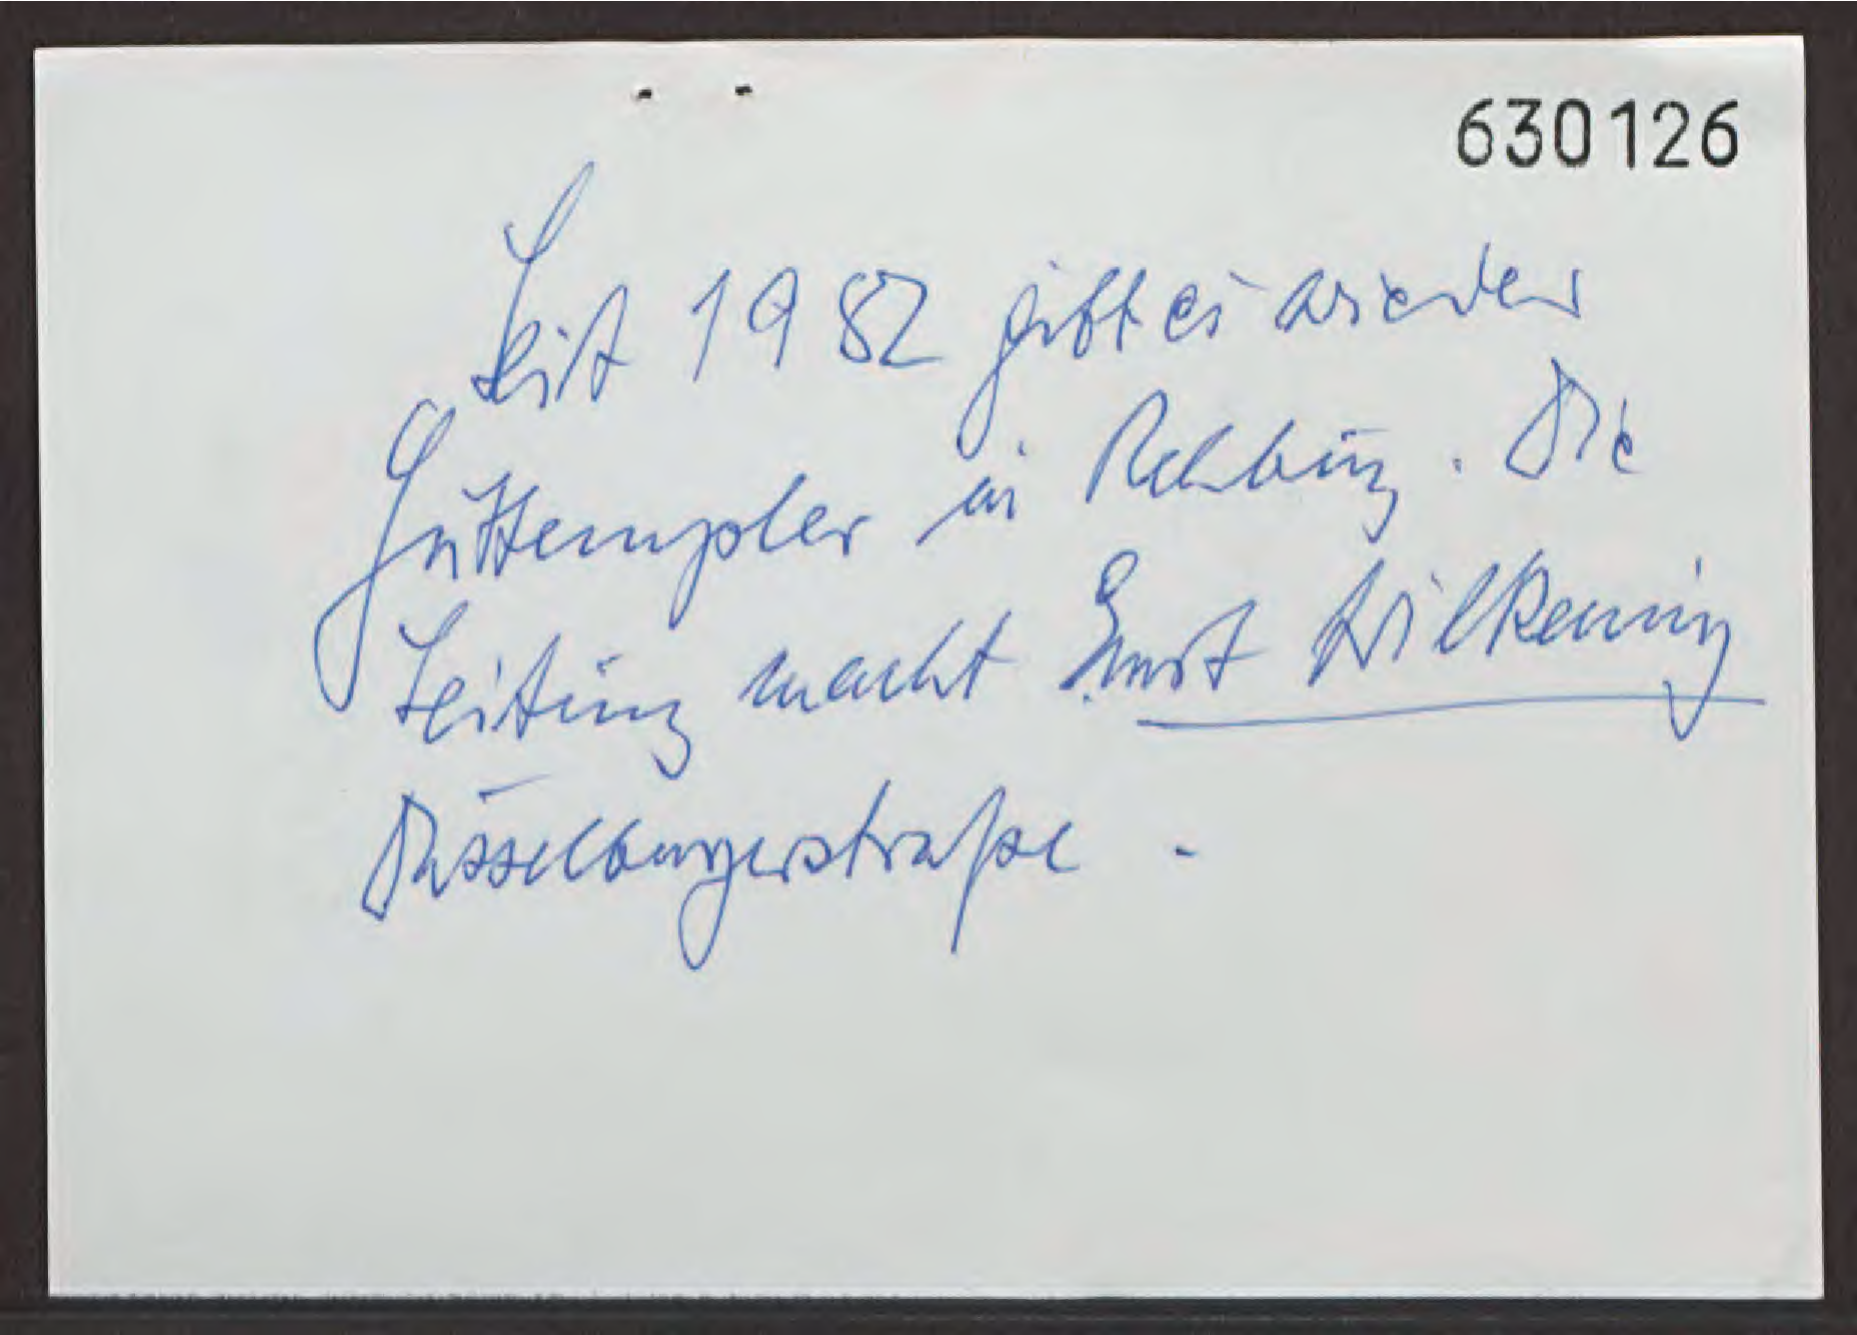 630126
Seit 1982 gibt es wieder
Guttempler in Rehburg. Die
Leitung macht Ernst Wilkening
Düsselburgerstraße.